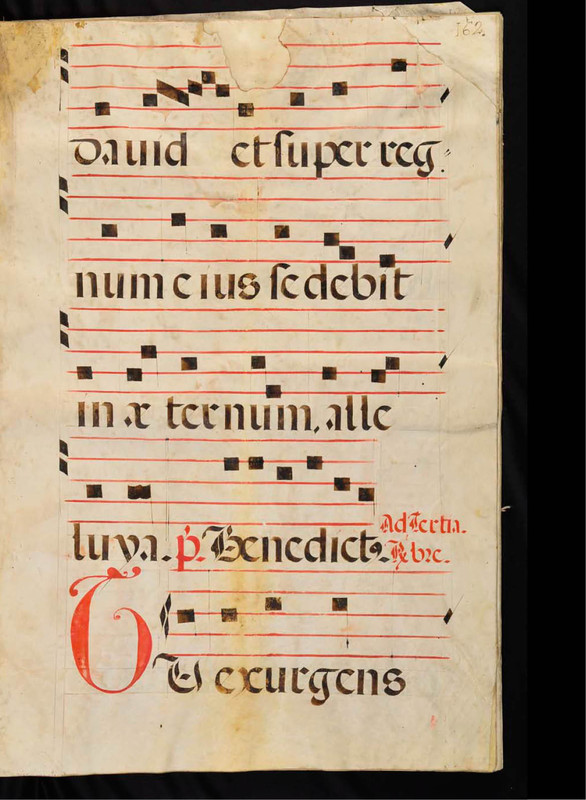 162.
dauid et super reg-
num eius sedebit
in æ ternum, alle
luya. p̃. Benedictꝰ. Ad Tertia.
℟ bre.
TU exurgens